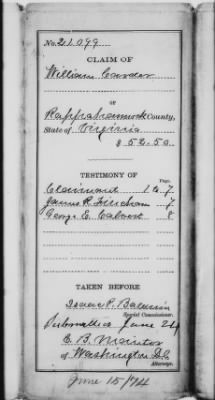 No. 21,099
CLAIM OF
William Carder
OF
Rappahannock County,
State of Virginia
$ 52.50
TESTIMONY OF
Claimant 1 to 7
James R. 7
George E. 8
TAKEN BEFORE
Isaac P. Baldwin
Special Commissioner.
Submitted June 24
E. B.
of Washington D.C.
Attorney.
June 15/74